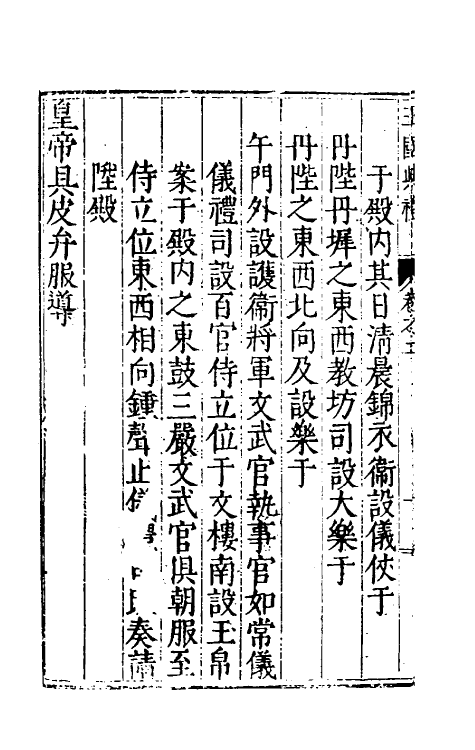 王國典禮 卷之五
于殿內其日清晨錦衣衞設儀仗于
丹陛丹墀之東西教坊司設大樂于
丹陛之東西北向及設樂于
午門外設護衞將軍文武官執事官如常儀
儀禮司設百官侍立位于文樓南設玉帛
案于殿內之東鼓三嚴文武官俱朝服至
侍立位東西相向鍾聲止 奏請
陞殿
皇帝具皮弁服導